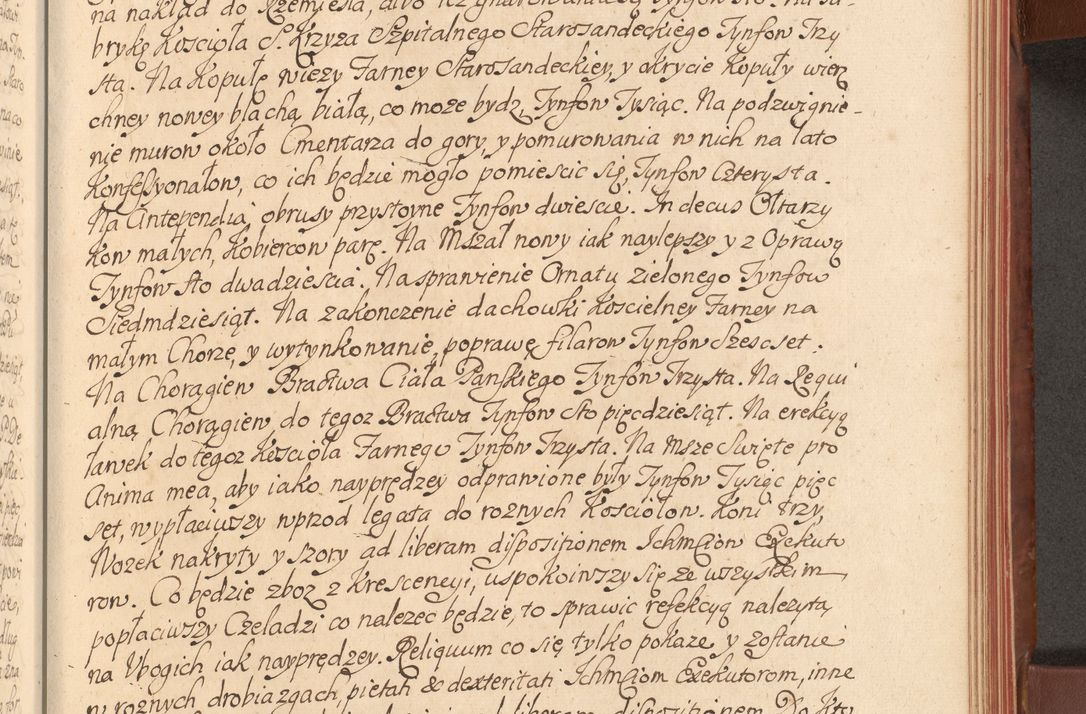 na nakład do Rzemiesła,
brykę Kościoła S. Krzyza Szpitalnego Starosandeckiego Tynfow Trzy
sta. Na Kopułę wiezy Farney Starosandeckiey, y okrycie kopuły wierz
chney nowey blachą białą, co może bydz, Tynfow Tysiąc. Na podzwignie-
nie murow około Cmentarza do gory, y pomurowania w nich na lato
Konfessyonałow, co ich będzie mogło pomiescic się, Tynfow Czterysta.
Na Antependia, obrusy przystoyne Tynfow dwieście. In decus Ołtarzy
kow małych, Kobiercow parę. Na Mszał nowy iak naylepszy y z Oprawą
Tynfow sto dwadziescia. Na sprawienie Ornatu zielonego Tynfow
Siedmdziesiąt. Na zakonczenie dachowki Koscielney Farney na
małym Chorze, y wytynkowanie, poprawę filarow Tynfow Szescset.
Na Chorągiew Bractwa Ciała Panskiego Tynfow Trzysta. Na Requi
alną Chorągiew do tegoz Bractwa Tynfow Sto pięcdziesiąt. Na erekcyą
ławek do tegoz Kościoła Farnego Tynfow Trzysta. Na Msze Swięte pro
Anima mea, aby iako nayprędzey odprawione były Tynfow Tysiąc pięc
set, wypłaciwszy wprzod legata do roznych Kosciołow. Koni trzy,
Wozek nakryty y szory ad liberam dispositionem Ichmciow Exekuto
row. Co będzie zboz z krescencyi, uspokoiwszy się ze wszystkim
popłaciwszy Czeladzi co nalezec będzie, to sprawic refekcyą nalezytą
na Vbogich iak nayprędzey. Reliquum co się tylko pokaze y zostanie
w roznych drobiazgach, pietati & dexteritati Ichmciom Exekutorom, inne
liberam dispositionem Da Kto